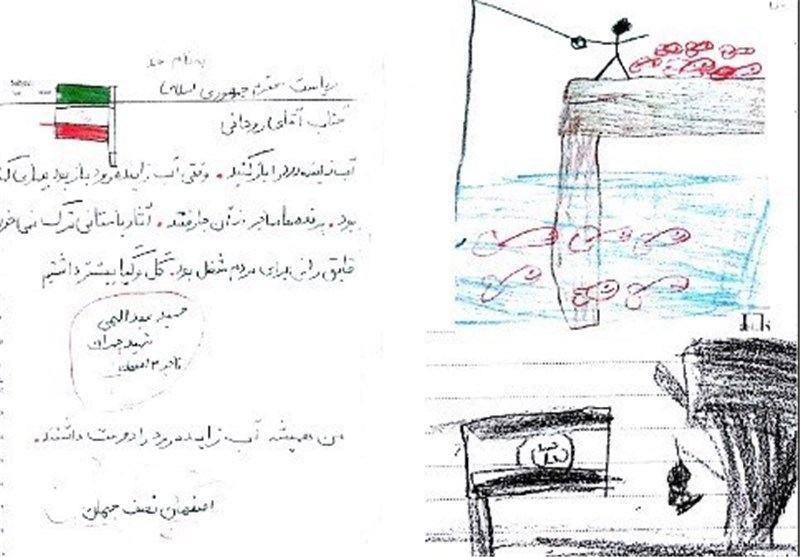 به نام خدا
ریاست محترم جمهوری اسلامی
جناب آقای روحانی
آب زاینده رود را باز کنید. وقتی آب زاینده رود باز بود برای
بود. پرنده ها مهاجر به آن جا رفتند. آثار باستانی ترک نمی خو
قایق رانی برای مردم شغل بود. گل و گیا بیشتر داشتیم
حمید عبدالهی
شهید چمران
ناحیه ۳ اصفهان
من همیشه آب زاینده رود را دوست داشتم.
اصفهان نصف جهان